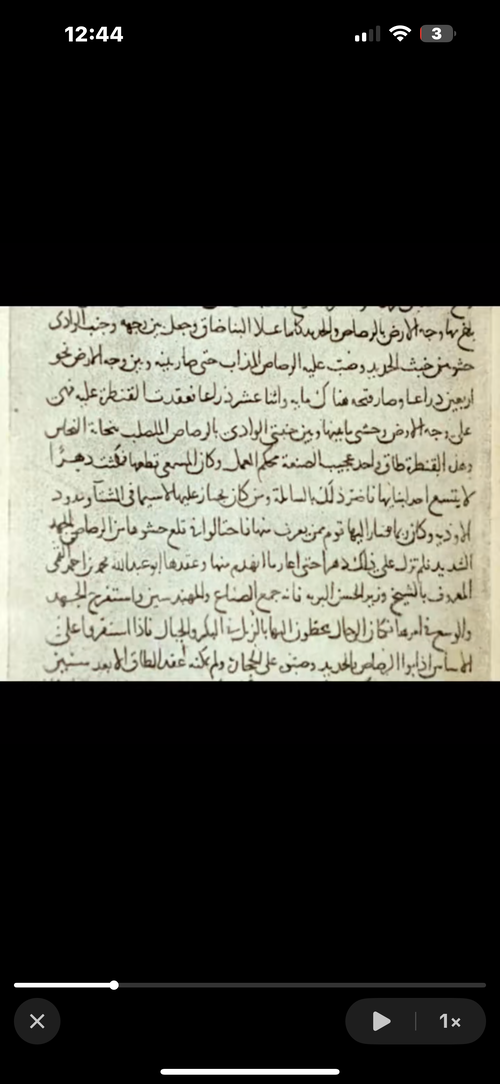 12:44
3
وجه الارض بالرصاص والحديد كلما علا البنا ضاق وجعل بين وجهه وجنب الوادى
حشو من خبث الحديد وصب عليه الرصاص المذاب حتى صار بينه وبين وجه الارض نحو
اربعين ذراعا وصار فتحه هناك مايه واثنا عشر ذراعا فعقدت القنطره عليه
على وجه الارض وحشى ما بينها وبين جنبتى الوادى بالرصاص المصلب بنحاتة النحاس
وهذه القنطرة طاق واحد عجيب الصنعة محكم العمل وكان المسمعى قطعها فمكثت دهرا
لا يتسع احد لبنايها فاضر ذلك بالسابلة ومن كان يجتاز عليها لاسيما فى الشتا ومدود
الاودية وكان ربما صار اليها قوم ممن يقرب منها فاحتالوا فى قلع حشوها من الرصاص بالجهد
الشديد فلم تزل على ذلك دهرا حتى اعاد ما انهدم منها وعقدها ابو عبدالله محمد بن احمد القمى
المعروف بالشيخ وزير الحسن البويه فانه جمع الصناع والمهندسين واستفرغ الجهد
والوسع فى امرها فكان الرجال يحطون اليها بالزبل فى البكر والحبال فاذا استقروا على
الاساس اذابوا الرصاص بالحديد وصبوه على الحجارة ولم يمكنه عقد الطاق الا بعد سنين
1×